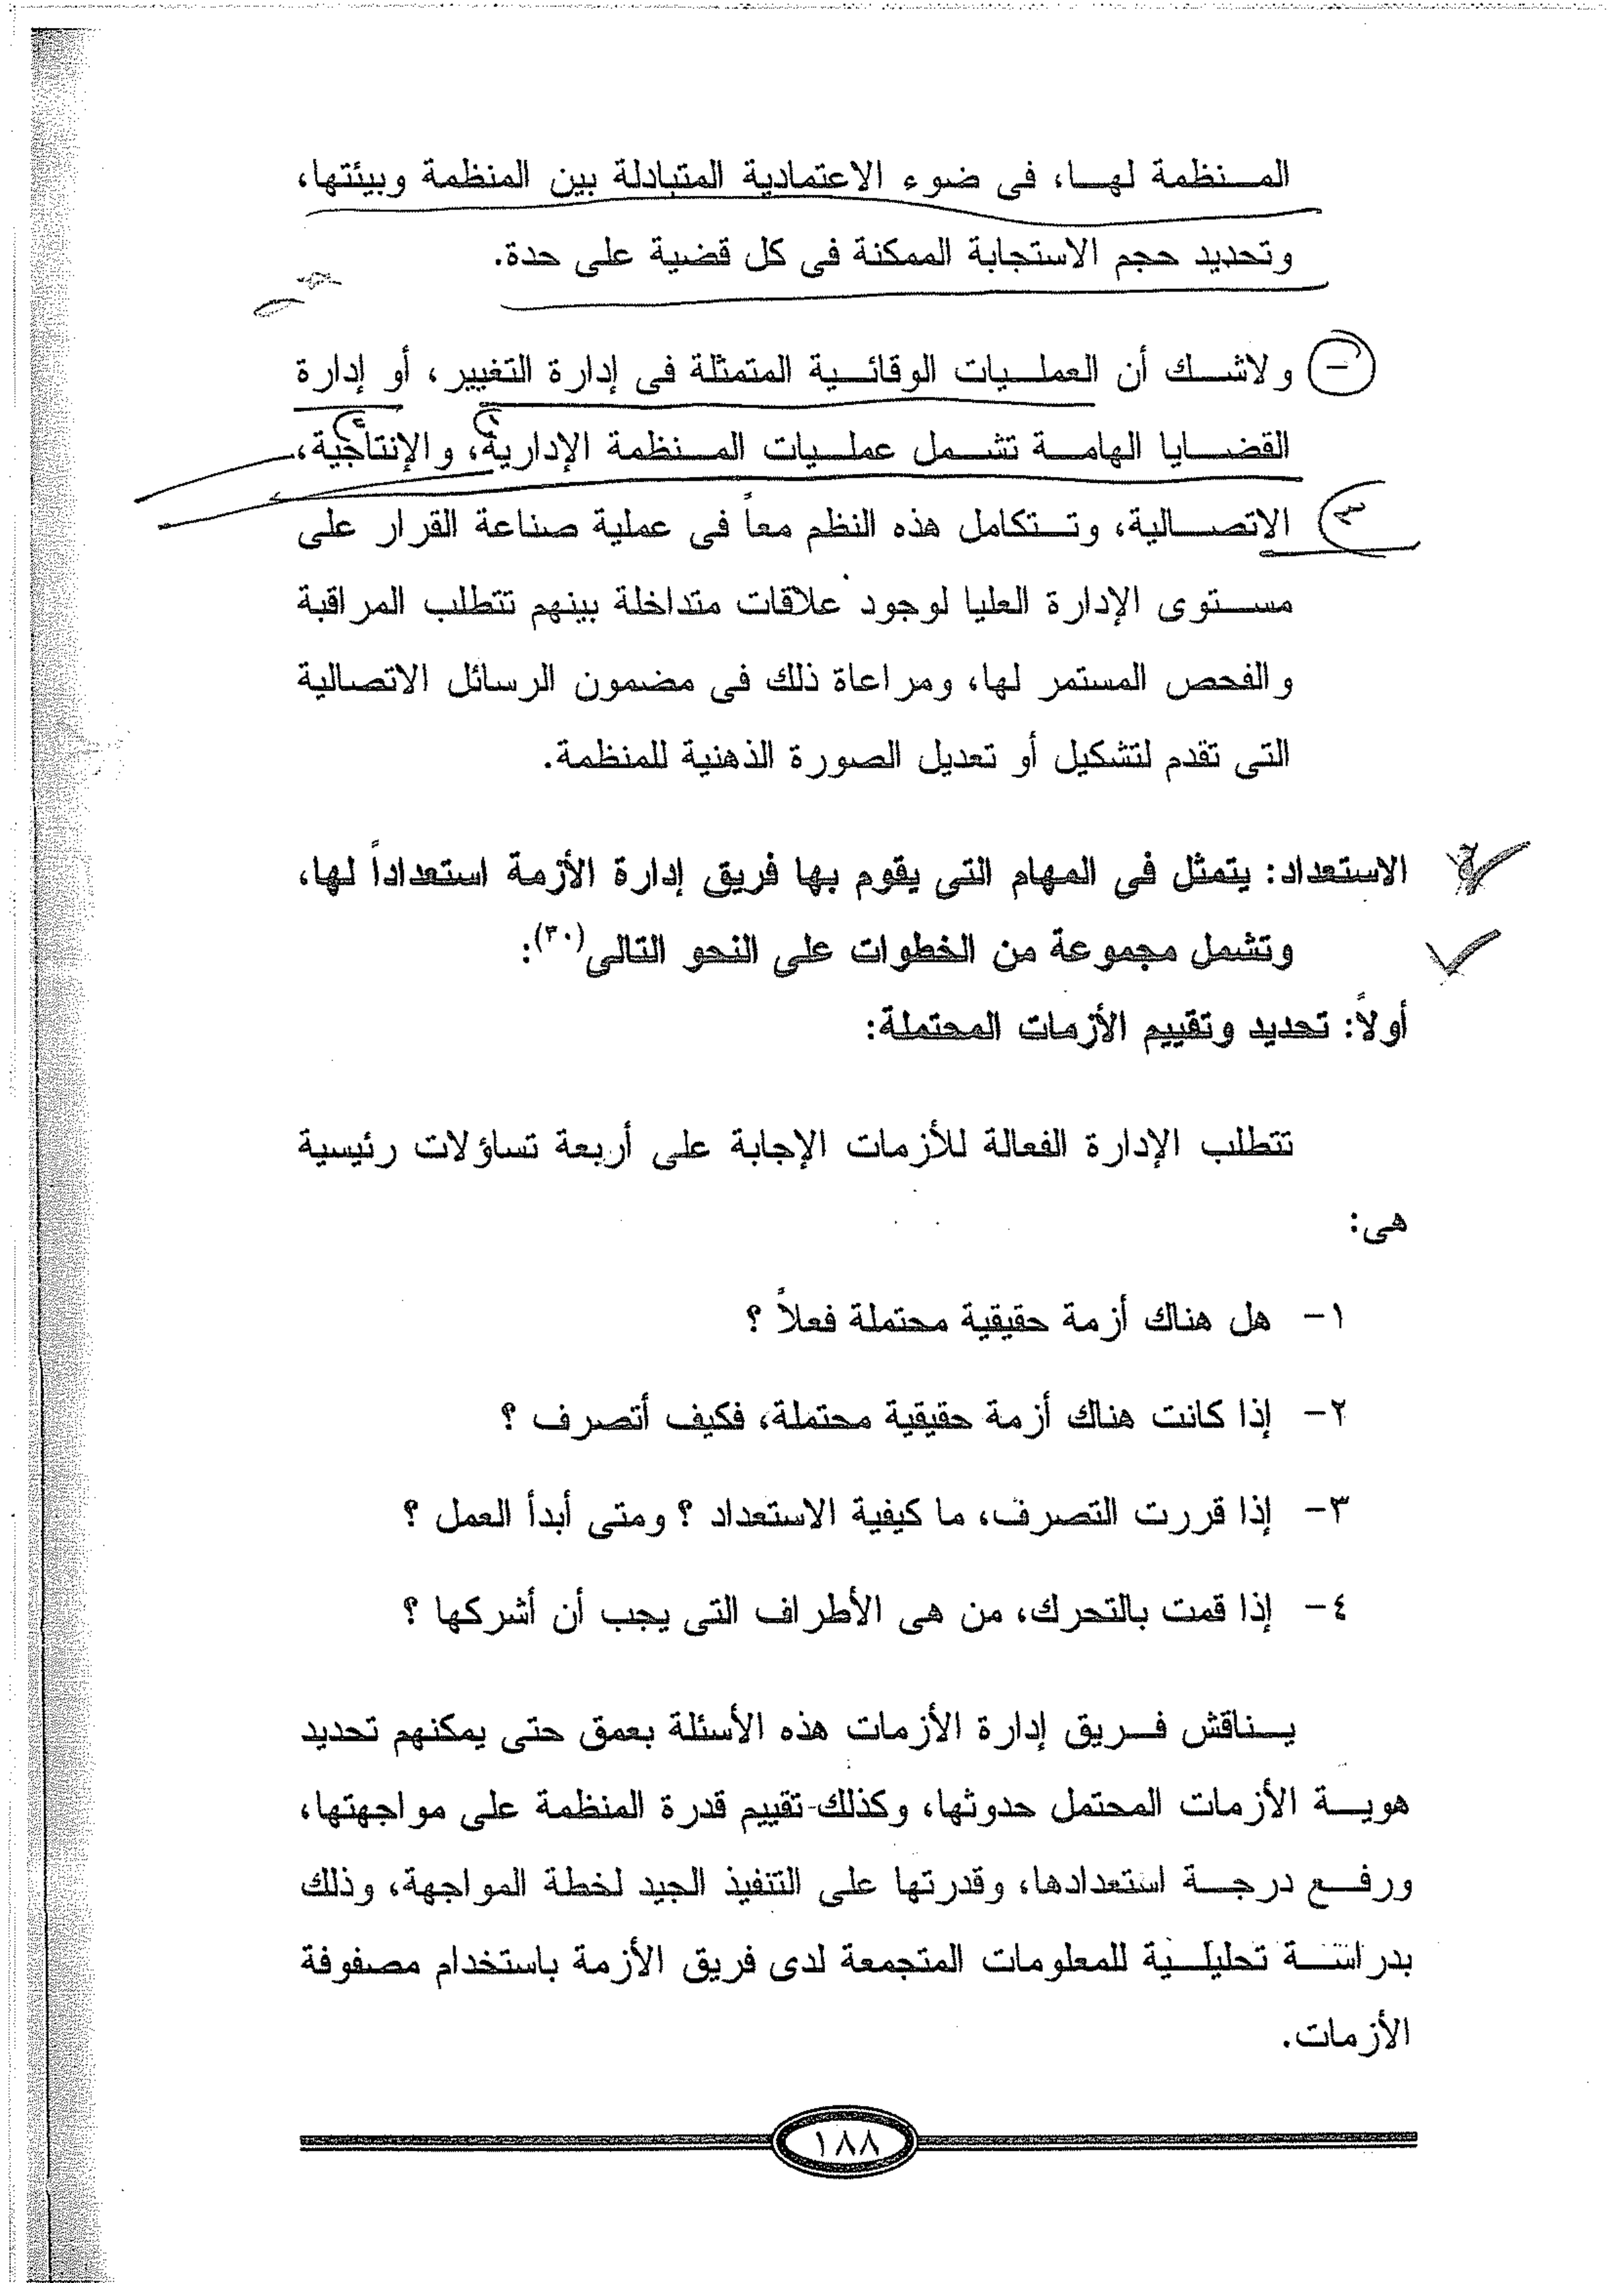 المنظمة لها، فى ضوء الاعتمادية المتبادلة بين المنظمة وبيئتها،
وتحديد حجم الاستجابة الممكنة فى كل قضية على حدة.
- ولاشك أن العمليات الوقائية المتمثلة فى إدارة التغيير، أو إدارة
القضايا الهامة تشمل عمليات المنظمة الإدارية، والإنتاجية،
الاتصالية، وتتكامل هذه النظم معاً فى عملية صناعة القرار على
مستوى الإدارة العليا لوجود علاقات متداخلة بينهم تتطلب المراقبة
والفحص المستمر لها، ومراعاة ذلك فى مضمون الرسائل الاتصالية
التى تقدم لتشكيل أو تعديل الصورة الذهنية للمنظمة.
الاستعداد: يتمثل فى المهام التى يقوم بها فريق إدارة الأزمة استعداداً لها،
وتشمل مجموعة من الخطوات على النحو التالى(٣٠):
أولاً: تحديد وتقييم الأزمات المحتملة:
تتطلب الإدارة الفعالة للأزمات الإجابة على أربعة تساؤلات رئيسية
هى:
١- هل هناك أزمة حقيقية محتملة فعلاً ؟
٢- إذا كانت هناك أزمة حقيقية محتملة، فكيف أتصرف ؟
٣- إذا قررت التصرف، ما كيفية الاستعداد ؟ ومتى أبدأ العمل ؟
٤- إذا قمت بالتحرك، من هى الأطراف التى يجب أن أشركها ؟
يناقش فريق إدارة الأزمات هذه الأسئلة بعمق حتى يمكنهم تحديد
هوية الأزمات المحتمل حدوثها، وكذلك تقييم قدرة المنظمة على مواجهتها،
ورفع درجة استعدادها، وقدرتها على التنفيذ الجيد لخطة المواجهة، وذلك
بدراسة تحليلية للمعلومات المتجمعة لدى فريق الأزمة باستخدام مصفوفة
الأزمات.
١٨٨